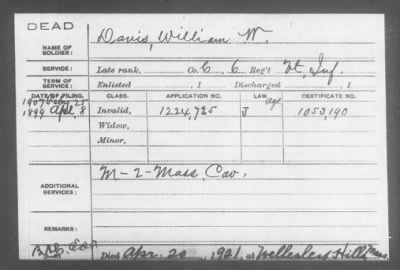 DEAD
NAME OF SOLDIER: Davis, William W.
SERVICE: Late rank, Co. C, 6 Reg't Vt. Inf.
TERM OF SERVICE: Enlisted , 1 Discharged , 1
DATE OF FILING. CLASS. APPLICATION NO. LAW. CERTIFICATE NO.
1907 Feby 21 age
1899 Apl. 8 Invalid, 1224,725 J 1053,190
Widow,
Minor,
ADDITIONAL SERVICES: M-2-Mass, Cav.
REMARKS:
Died Apr. 20, 1921, at Wellesley Hills, Mass.